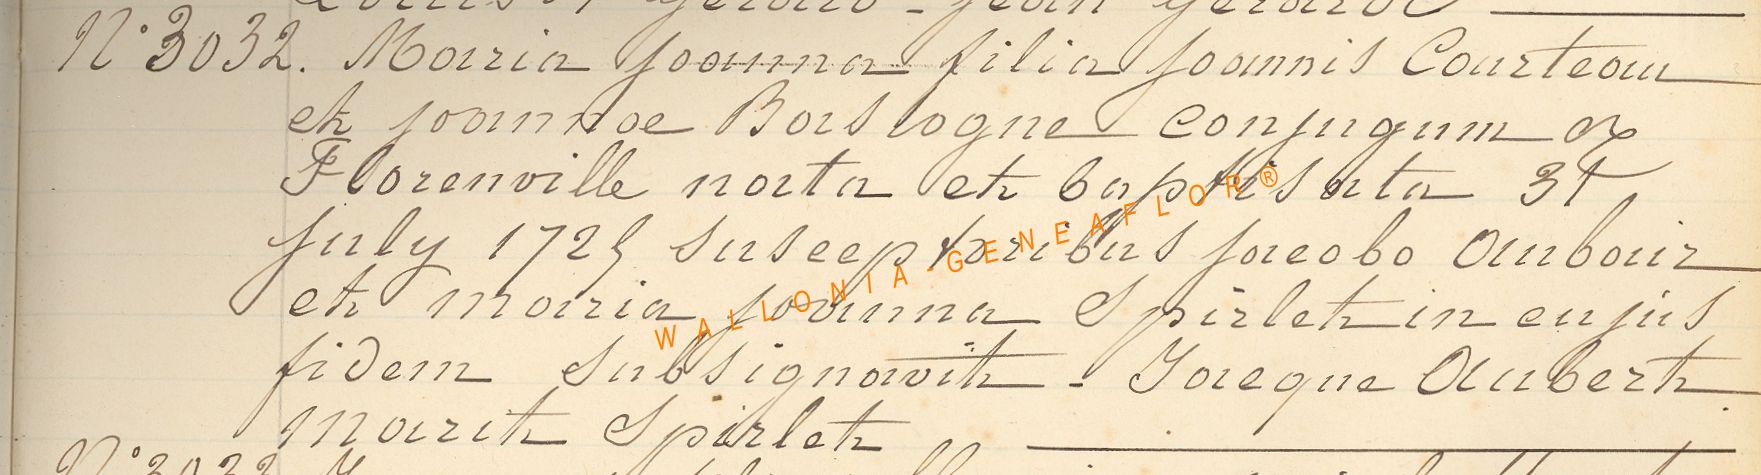 N° 3032. Maria Joanna filia Joannis Courteau
et joannoe Baslogne conjugum ex
Florenville nata et baptisata 31
july 1725 susceptoribus jacobo Aubair
et maria joanna Spirlet in cujus
fidem subsignavit - Jacque Aubert
marit Spirlet
N° 3033
WALLONIA-GENEAFLOR®